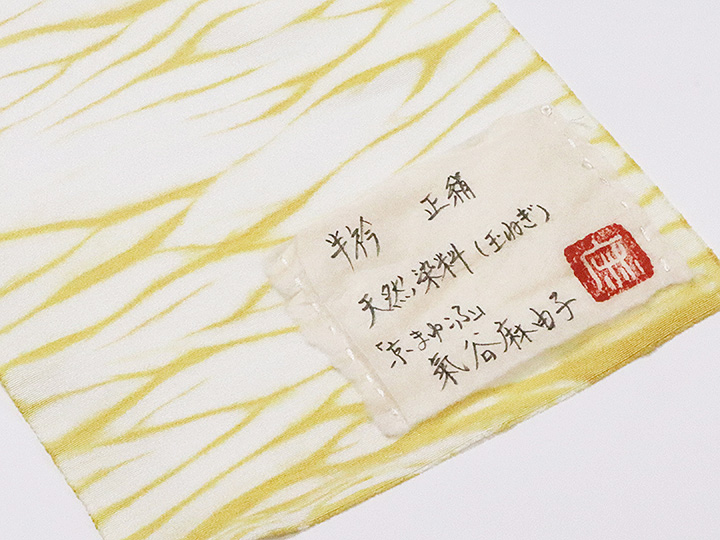 半衿 正絹
天然染料(玉ねぎ)
「京まゆふ」
氣谷麻由子
麻